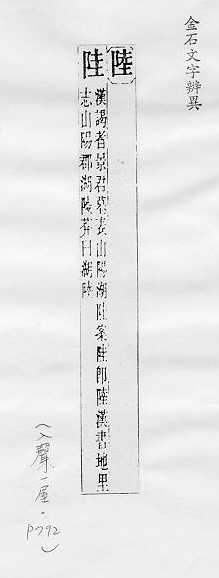 金石文字辨異
陸
漢謁者景君墓表山陽湖案即陸漢書地里
志山陽郡湖陵莽曰湖陸
(入聲一屋.P792)